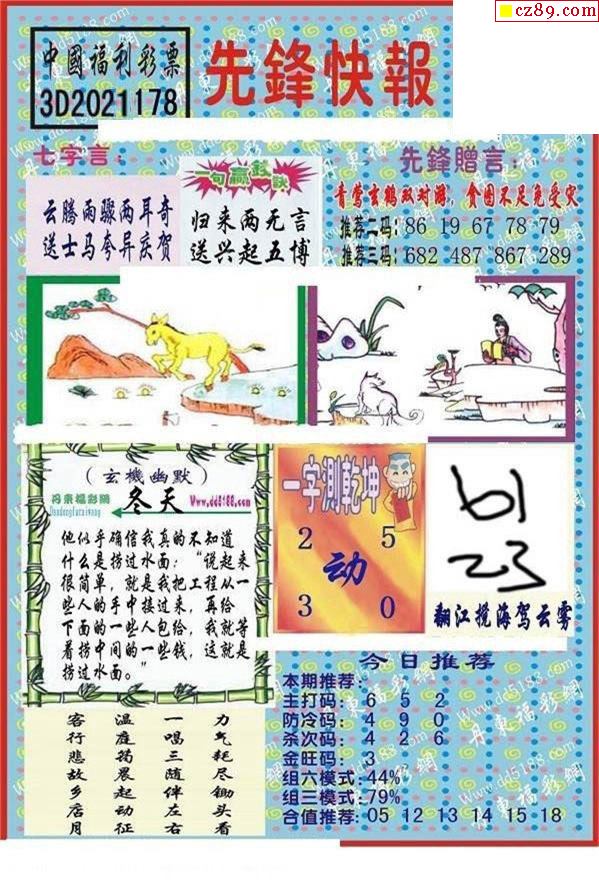 cz89.com
中國福利彩票
3D2021178
先鋒快報
七字言：
云腾雨骤两耳奇
送士马夸异庆贺
一句赢钱诀
归来两无言
送兴起五博
先鋒贈言：
青莺玄鹤双对游，食图不足免受灾
推荐二码：86 19 67 78 79
推荐三码：682 487 867 289
（玄機幽默）
丹東福彩網
Dandongfucaiwang
冬天
Www.dd5188.com
他似乎确信我真的不知道
什么是捞过水面：“说起来
很简单，就是我把工程从一
些人的手中接过来，再给
下面的一些人包给，我就等
着捞中间的一些钱，这就是
捞过水面。”
一字测乾坤
2 5
动
3 0
61
23
翻江搅海驾云雾
客行悲故乡店月
温庭筠晨起动征
一唱三随伴左右
力气耗尽锄头看
今日推荐
本期推荐：
主打码：6 5 2
防冷码：4 9 0
杀次码：4 2 6
金旺码：3
组六模式：44%
组三模式：79%
合值推荐：05 12 13 14 15 18